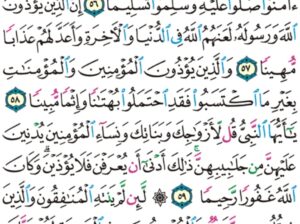 ءَامَنُوا۟ صَلُّوا۟ عَلَيْهِ وَسَلِّمُوا۟ تَسْلِيمًا ٥٦ إِنَّ ٱلَّذِينَ يُؤْذُونَ
ٱللَّهَ وَرَسُولَهُۥ لَعَنَهُمُ ٱللَّهُ فِى ٱلدُّنْيَا وَٱلْـَٔاخِرَةِ وَأَعَدَّ لَهُمْ عَذَابًا
مُّهِينًا ٥٧ وَٱلَّذِينَ يُؤْذُونَ ٱلْمُؤْمِنِينَ وَٱلْمُؤْمِنَـٰتِ
بِغَيْرِ مَا ٱكْتَسَبُوا۟ فَقَدِ ٱحْتَمَلُوا۟ بُهْتَـٰنًا وَإِثْمًا مُّبِينًا ٥٨
يَـٰٓأَيُّهَا ٱلنَّبِىُّ قُل لِّأَزْوَٰجِكَ وَبَنَاتِكَ وَنِسَآءِ ٱلْمُؤْمِنِينَ يُدْنِينَ
عَلَيْهِنَّ مِن جَلَـٰبِيبِهِنَّ ۚ ذَٰلِكَ أَدْنَىٰٓ أَن يُعْرَفْنَ فَلَا يُؤْذَيْنَ ۗ وَكَانَ
ٱللَّهُ غَفُورًا رَّحِيمًا ٥٩ لَّئِن لَّمْ يَنتَهِ ٱلْمُنَـٰفِقُونَ وَٱلَّذِينَ